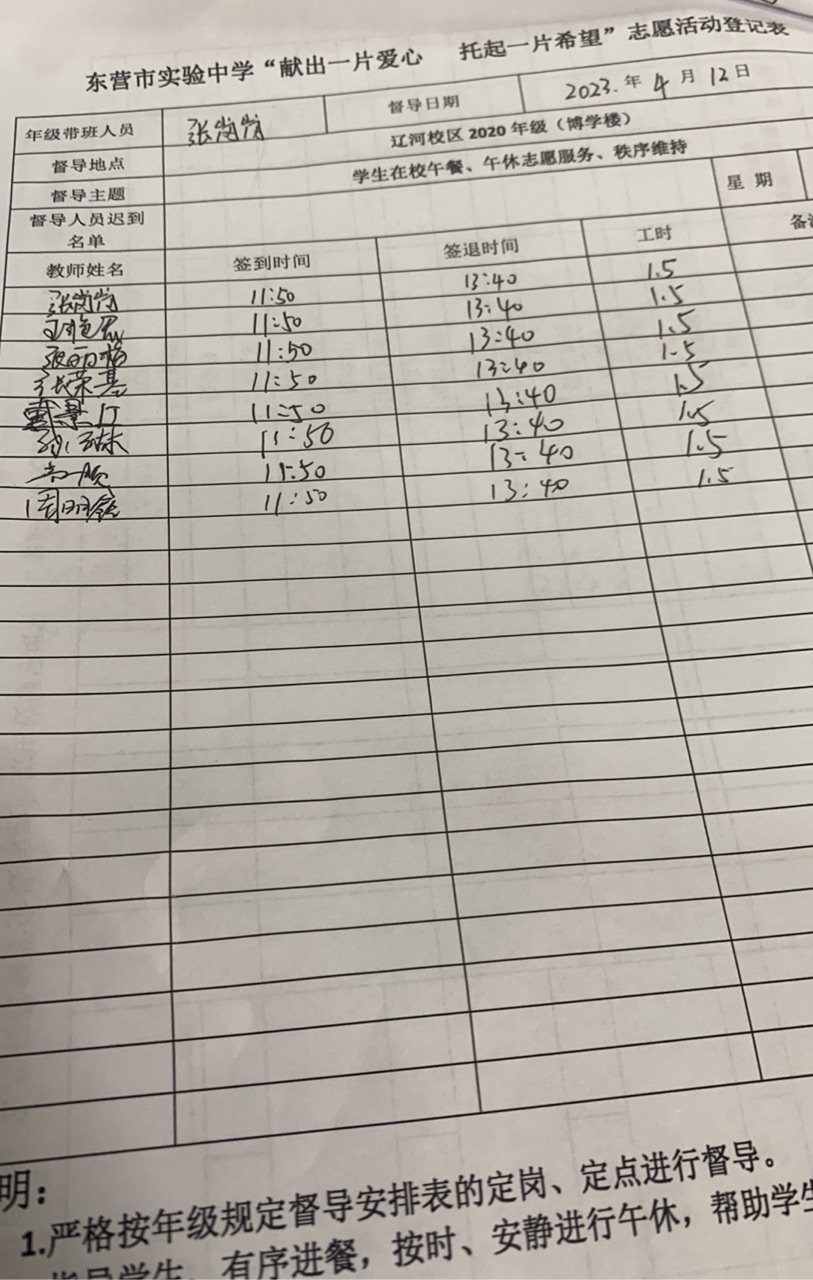 东营市实验中学“献出一片爱心 托起一片希望”志愿活动登记表
年级带班人员 张岗岗 督导日期 2023.年 4 月 12 日
督导地点 辽河校区 2020 年级（博学楼）
督导主题 学生在校午餐、午休志愿服务、秩序维持
督导人员迟到名单 星 期
教师姓名 签到时间 签退时间 工时
张岗岗 11:50 13:40 1.5
11:50 13:40 1.5
张丽梅 11:50 13:40 1.5
张荣基 11:50 13:40 1.5
11:50 13:40 1.5
11:50 13:40 1.5
11:50 13:40 1.5
11:50 13:40 1.5
明：
1.严格按年级规定督导安排表的定岗、定点进行督导。
学生、有序进餐，按时、安静进行午休，帮助学生